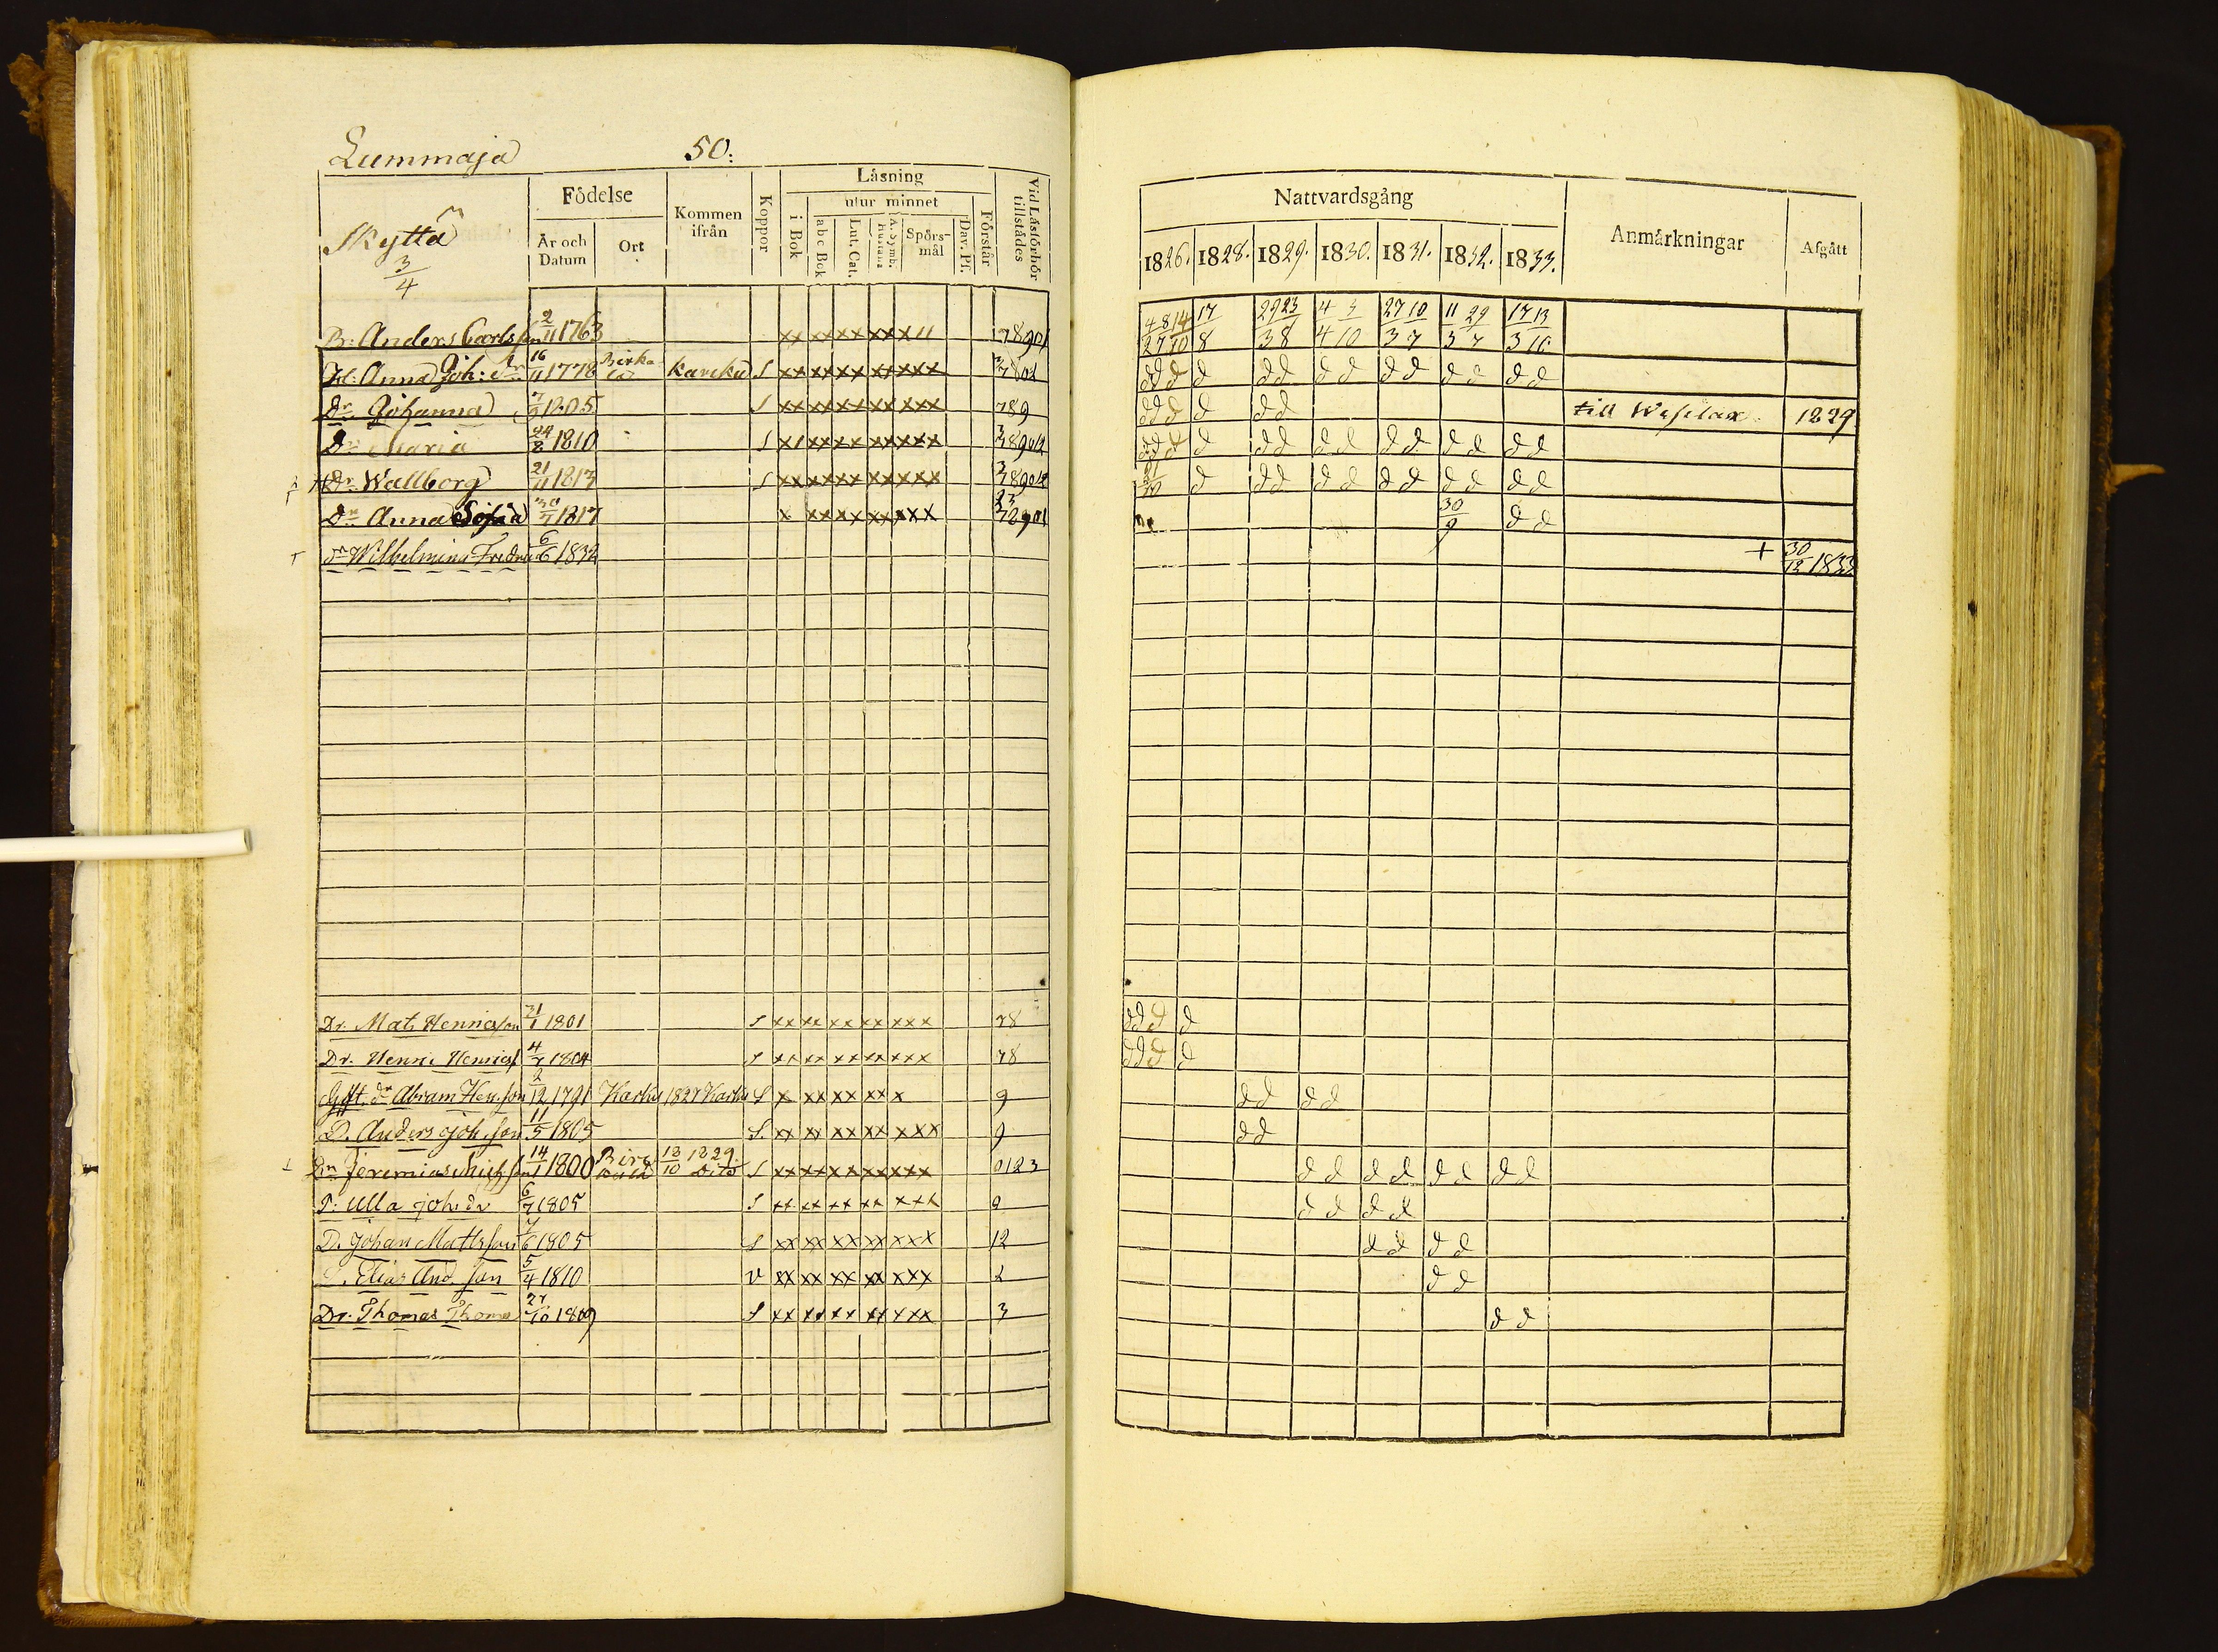 Lummaja 50.
Skyttä
3/4
Födelse
År och Datum
Ort
Kommen ifrån
Koppor
Läsning
i Bok
utur minnet
a b c Bok
Lut. Cat.
A. Symb. Hustafla
Spörsmål
Dav. Ps.
Förstår
Vid Läsförhör tillstådes
B: Anders Carlsson 2/11 1763 xx xx xx xx x 11 78901
H: Anna Joh: dr 16/11 1778 Birkala Karcku S xx xx xx xx xxx
Dr Johanna 1805 S xx xx xx xx xxx 789
Dr Maria 24/8 1810 S xx xx xx xx xxx
Dr Wallborg 21/11 1813 S xx xx xx xx xxx
Dr Anna Sofia 1817 x xx xx xx xxx
dr Wilhelmina Fredrica 6/6 1832
Dr. Mat. Henricsson 21/1 1801 S xx xx xx xx xxx 78
Dr. Henric Henricss 4/7 1804 S xx xx xx xx xxx 78
Gift dr Abram Hen.son 2/12 1791 Karku 1827 Karku S x xx xx xx x 9
D. Anders Joh.son 11/5 1805 S. xx xx xx xx xxx 9
Dr Jeremias Mich.son 14/1 1800 Birckala 13/10 1829 dito S xx xx xx xx xxx 0123
P: Ulla Joh: dr 6/7 1805 S xx xx xx xx xxx 9
D. Johan Mattsson 7/6 1805 S xx xx xx xx xxx 12
D. Elias And. son 5/4 1810 v xx xx xx xx xxx 2
Dr. Thomas Thomas 27/10 1809 S xx xx xx xx xxx 3
Nattvardsgång
1826. 1828. 1829. 1830. 1831. 1832. 1833.
Anmärkningar
Afgått
4 8 14 17 29 23 4 3 27 10 11 29 17 13
2 7 10 8 3 8 4 10 3 7 3 7 3 10
d d d d d d d d d d d d d d
d d d d d d till Wesilax. 1829
d d d d d d d d d d d d d d
d d d d d d d d d d d
30/9 d d
+ 30/12 1833
d d d d
d d d d
d d d d
d d
d d d d d d d d
d d d d
d d d d
d d
d d